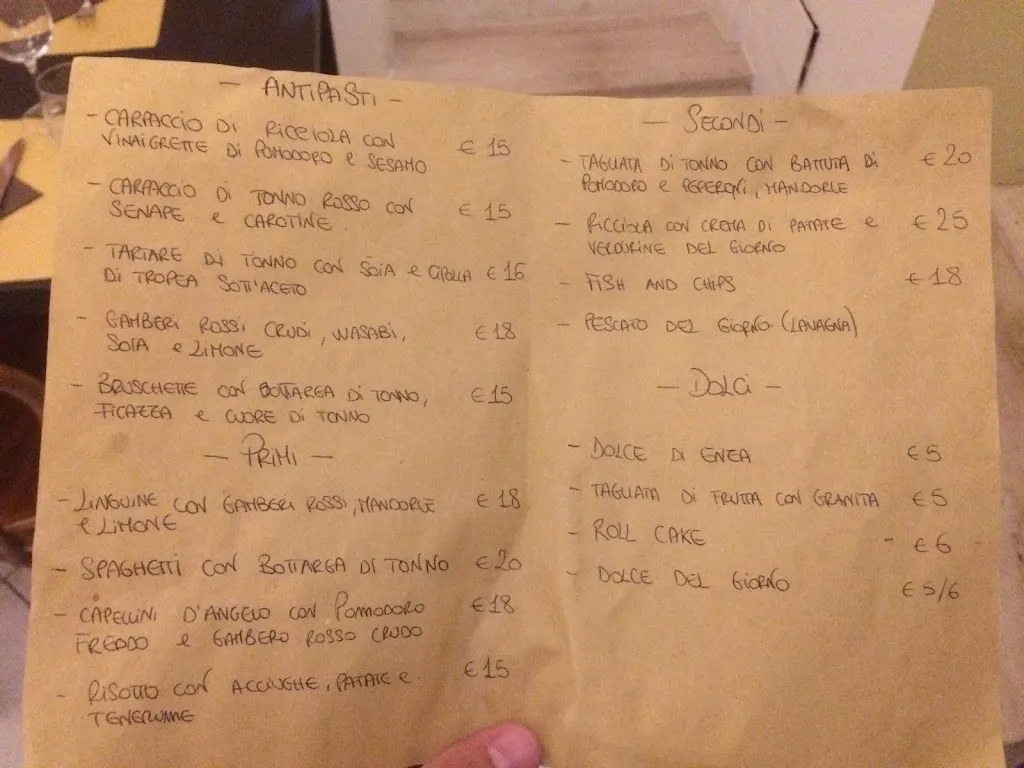 - ANTIPASTI -
- CARPACCIO DI RICCIOLA CON € 15
VINAIGRETTE DI POMODORO e SESAMO
- CARPACCIO DI TONNO ROSSO CON € 15
SENAPE e CAROTINE.
- TARTARE DI TONNO CON SOIA e CIPOLLA € 16
DI TROPEA SOTT'ACETO
- GAMBERI ROSSI CRUDI, WASABI, € 18
SOIA e LIMONE
- BRUSCHETTE CON BOTTARGA DI TONNO, € 15
FICAZZA e CUORE DI TONNO
- PRIMI -
- LINGUINE CON GAMBERI ROSSI, MANDORLE € 18
e LIMONE
- SPAGHETTI CON BOTTARGA DI TONNO € 20
- CAPELLINI D'ANGELO CON POMODORO € 18
FREDDO e GAMBERO ROSSO CRUDO
- RISOTTO CON ACCIUGHE, PATATE e € 15
TENERUME
- SECONDI -
- TAGLIATA DI TONNO CON BATTUTA DI € 20
POMODORO e PEPERONI, MANDORLE
- RICCIOLA CON CREMA DI PATATE e € 25
VERDURINE DEL GIORNO
- FISH AND CHIPS € 18
- PESCATO DEL GIORNO (LAVAGNA)
- DOLCI -
- DOLCE DI ENEA € 5
- TAGLIATA DI FRUTTA CON GRANITA € 5
- ROLL CAKE - € 6 -
- DOLCE DEL GIORNO € 5/6